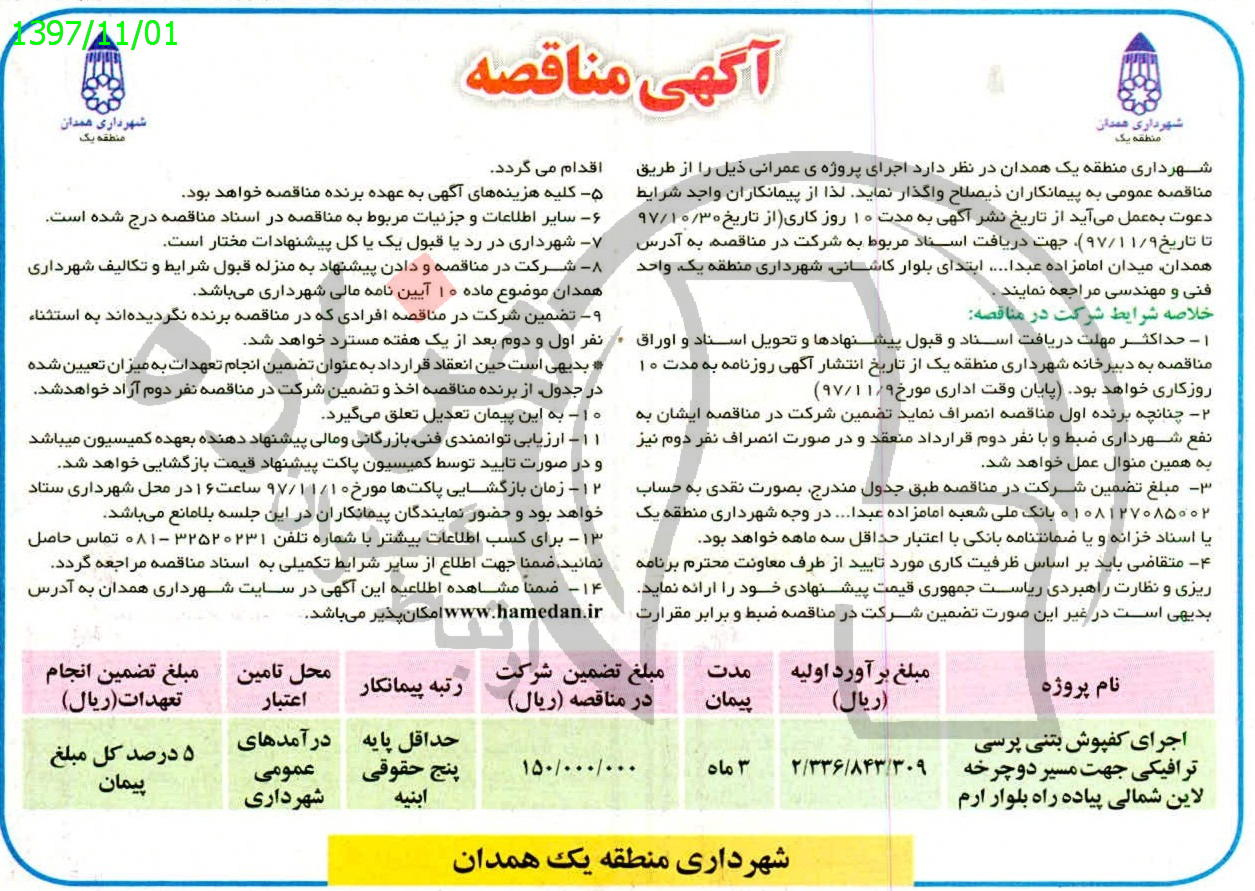 1397/11/01
آگهی مناقصه
شهرداری همدان
منطقه یک
شهرداری همدان
منطقه یک
شهرداری منطقه یک همدان در نظر دارد اجرای پروژه ی عمرانی ذیل را از طریق
مناقصه عمومی به پیمانکاران ذیصلاح واگذار نماید. لذا از پیمانکاران واجد شرایط
دعوت به‌عمل می‌آید از تاریخ نشر آگهی به مدت ۱۰ روز کاری(از تاریخ۹۷/۱۰/۳۰
تا تاریخ۹۷/۱۱/۹)، جهت دریافت اسناد مربوط به شرکت در مناقصه، به آدرس
همدان، میدان امامزاده عبدا...، ابتدای بلوار کاشانی، شهرداری منطقه یک، واحد
فنی و مهندسی مراجعه نمایند .
خلاصه شرایط شرکت در مناقصه:
۱- حداکثر مهلت دریافت اسناد و قبول پیشنهادها و تحویل اسناد و اوراق
مناقصه به دبیرخانه شهرداری منطقه یک از تاریخ انتشار آگهی روزنامه به مدت ۱۰
روزکاری خواهد بود. (پایان وقت اداری مورخ۹۷/۱۱/۹)
۲- چنانچه برنده اول مناقصه انصراف نماید تضمین شرکت در مناقصه ایشان به
نفع شهرداری ضبط و با نفر دوم قرارداد منعقد و در صورت انصراف نفر دوم نیز
به همین منوال عمل خواهد شد.
۳- مبلغ تضمین شرکت در مناقصه طبق جدول مندرج، بصورت نقدی به حساب
۰۱۰۸۱۲۷۰۸۵۰۰۲ بانک ملی شعبه امامزاده عبدا... در وجه شهرداری منطقه یک
یا اسناد خزانه و یا ضمانتنامه بانکی با اعتبار حداقل سه ماهه خواهد بود.
۴- متقاضی باید بر اساس ظرفیت کاری مورد تایید از طرف معاونت محترم برنامه
ریزی و نظارت راهبردی ریاست جمهوری قیمت پیشنهادی خود را ارائه نماید.
بدیهی است در غیر این صورت تضمین شرکت در مناقصه ضبط و برابر مقرارت
اقدام می گردد.
۵- کلیه هزینه‌های آگهی به عهده برنده مناقصه خواهد بود.
۶- سایر اطلاعات و جزئیات مربوط به مناقصه در اسناد مناقصه درج شده است.
۷- شهرداری در رد یا قبول یک یا کل پیشنهادات مختار است.
۸- شرکت در مناقصه و دادن پیشنهاد به منزله قبول شرایط و تکالیف شهرداری
همدان موضوع ماده ۱۰ آیین نامه مالی شهرداری می‌باشد.
۹- تضمین شرکت در مناقصه افرادی که در مناقصه برنده نگردیده‌اند به استثناء
نفر اول و دوم بعد از یک هفته مسترد خواهد شد.
* بدیهی است حین انعقاد قرارداد به عنوان تضمین انجام تعهدات به میزان تعیین شده
در جدول، از برنده مناقصه اخذ و تضمین شرکت در مناقصه نفر دوم آزاد خواهدشد.
۱۰- به این پیمان تعدیل تعلق می‌گیرد.
۱۱- ارزیابی توانمندی فنی،بازرگانی ومالی پیشنهاد دهنده بعهده کمیسیون میباشد
و در صورت تایید توسط کمیسیون پاکت پیشنهاد قیمت بازگشایی خواهد شد.
۱۲- زمان بازگشایی پاکت‌ها مورخ۹۷/۱۱/۱۰ ساعت۱۶در محل شهرداری ستاد
خواهد بود و حضور نمایندگان پیمانکاران در این جلسه بلامانع می‌باشد.
۱۳- برای کسب اطلاعات بیشتر با شماره تلفن ۳۲۵۲۰۲۳۱ -۰۸۱ تماس حاصل
نمائید.ضمنا جهت اطلاع از سایر شرایط تکمیلی به اسناد مناقصه مراجعه گردد.
۱۴- ضمنا مشاهده اطلاعیه این آگهی در سایت شهرداری همدان به آدرس
www.hamedan.irامکان‌پذیر می‌باشد.
نام پروژه
مبلغ برآورد اولیه
(ریال)
مدت
پیمان
مبلغ تضمین شرکت
در مناقصه (ریال)
رتبه پیمانکار
محل تامین
اعتبار
مبلغ تضمین انجام
تعهدات(ریال)
اجرای کفپوش بتنی پرسی
ترافیکی جهت مسیر دوچرخه
لاین شمالی پیاده راه بلوار ارم
۲/۳۳۶/۸۴۳/۳۰۹
۳ ماه
۱۵۰/۰۰۰/۰۰۰
حداقل پایه
پنج حقوقی
ابنیه
درآمدهای
عمومی
شهرداری
۵ درصد کل مبلغ
پیمان
شهرداری منطقه یک همدان